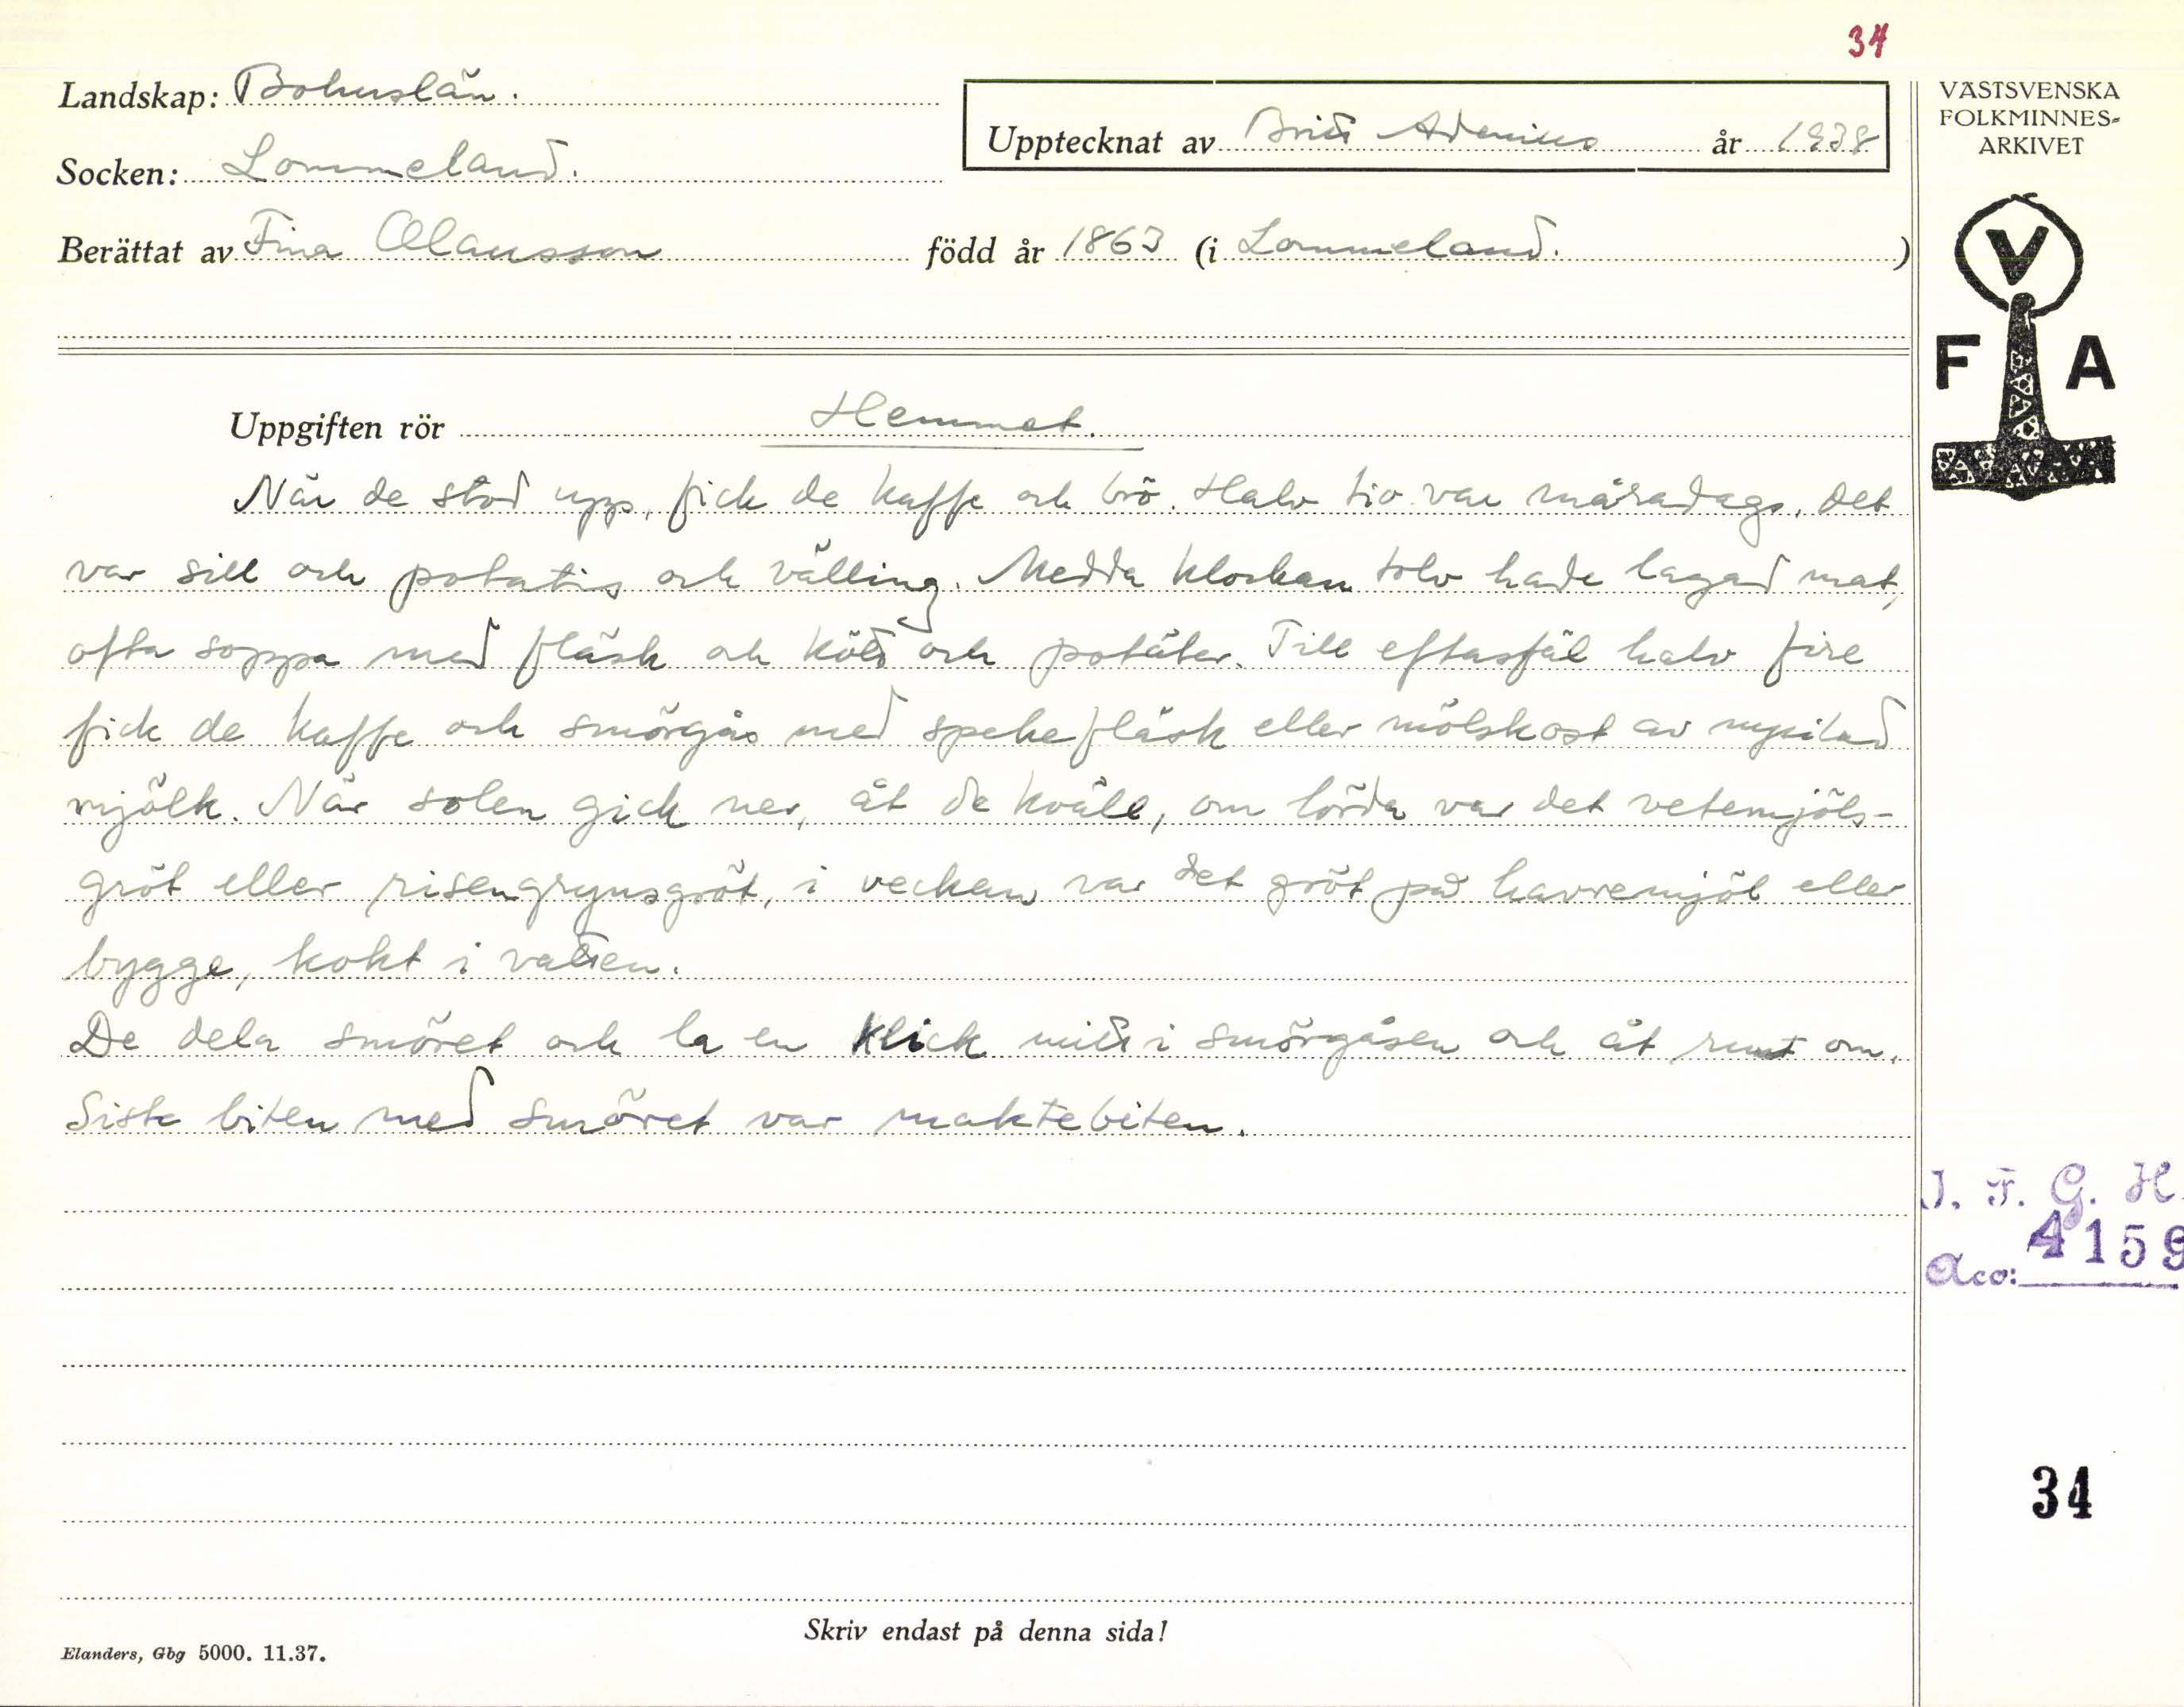 34
Landskap: Bohuslän.
Upptecknat av Britt Adenius år 1938
VÄSTSVENSKA
FOLKMINNES-
ARKIVET
Socken: Lommeland.
Berättat av Fina Olausson född år 1863 (i Lommeland.)
V
F A
Uppgiften rör Hemmet.
När de stod upp, fick de kaffe och brö. Halv tio var måradags, det
var sill och potatis och välling. Medda klockan tolv hade lagad mat,
ofta soppa med fläsk och kött och potäter. Till eftasfäl halv fire
fick de kaffe och smörgås med spekefläsk eller mölskost av nysilad
mjölk. När solen gick ner, åt de kväll, om lörda var det vetemjöls-
gröt eller risengrynsgröt, i veckan var det gröt på havremjöl eller
bygge, kokt i vatten.
De dela smöret och la en klick mitt i smörgåsen och åt runt om.
Siste biten med smöret var maktebiten.
I. F. G. H.
4159
Acc:
34
Skriv endast på denna sida!
Elanders, Gbg 5000. 11.37.